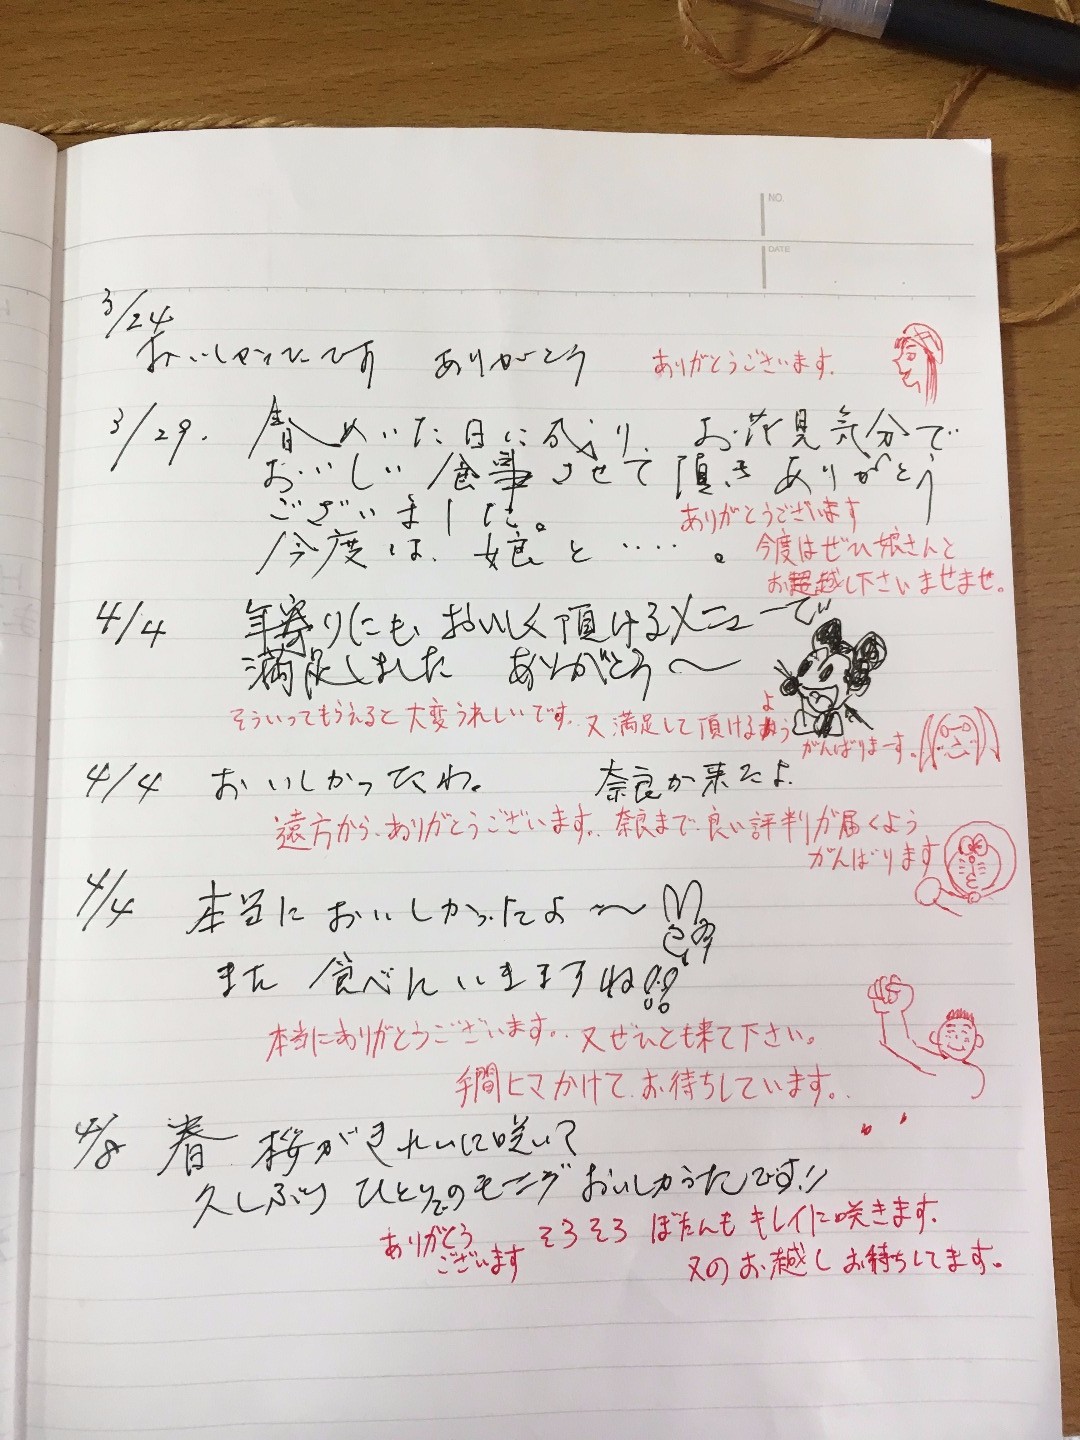 NO.
DATE
3/24
おいしかったです ありがとう ありがとうございます.
3/29. 春めいた日に成り、お花見気分で
おいしい食事させて頂きありがとう
ございました。
ありがとうございます
今度は、娘と‥‥。
今度はぜひ娘さんと
お越し下さいませませ。
4/4 年寄りにもおいしく頂けるメニューで
満足しました ありがとう〜
そういってもらえると大変うれしいです. 又満足して頂けるよう
がんばりまーす。
4/4 おいしかったわ。 奈良か来たよ.
遠方から、ありがとうございます. 奈良まで良い評判が届くよう
がんばります
4/4 本当においしかったよ〜
また食べにいきますね!!
本当にありがとうございます。. 又ぜひとも来て下さい。
手間ヒマかけて お待ちしています。.
4/8 春 桜がきれいに咲いて
久しぶり ひとりでのモーニング おいしかったです!!
ありがとう
ございます
そろそろ ぼたんも キレイに咲きます.
又のお越し お待ちしてます。